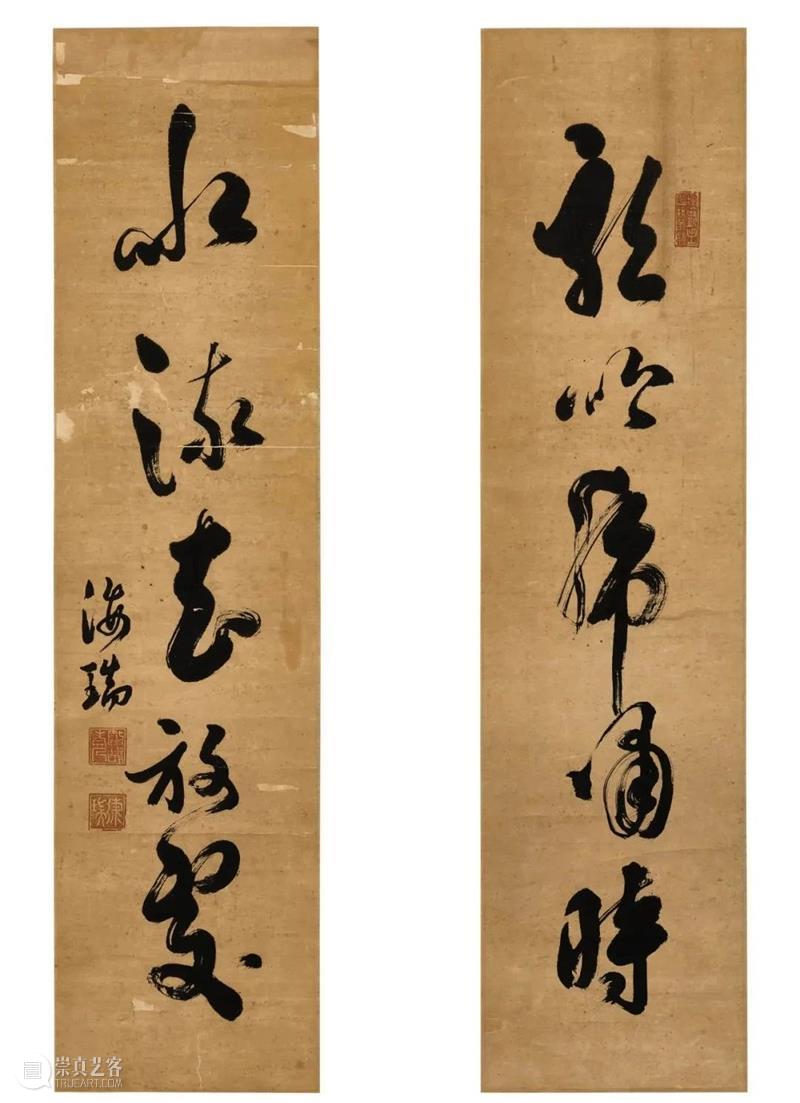 龍吟虎嘯時
水流花放處
海瑞
崇真艺客
TRUEART.COM